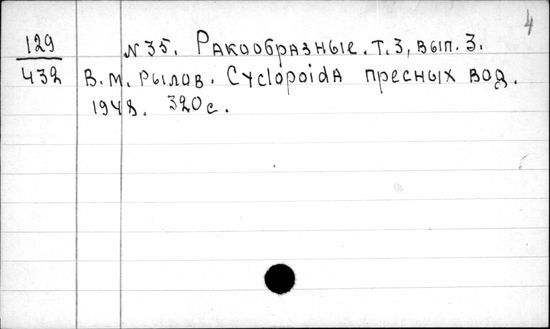 4
129 № 35. Ракообразные. т. 3, вып. 3.
432 В. М. Рылов. Cyclopoida пресных вод.
1948. 320 с.